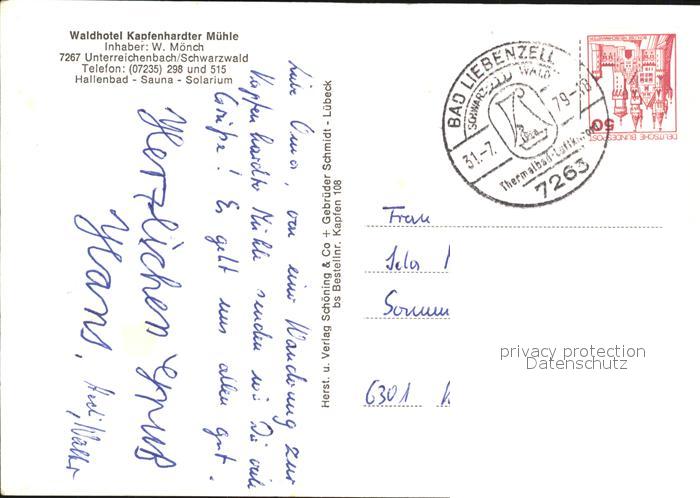 Waldhotel Kapfenhardter Mühle
Inhaber: W. Mönch
7267 Unterreichenbach/Schwarzwald
Telefon: (07235) 298 und 515
Hallenbad - Sauna - Solarium
Liebe Oma, von einer Wanderung zur
Kapfenhardter Mühle senden wir Dir viele
Grüße! Es geht uns allen gut.
Herzlichen Gruß
Hans, Hedi, Walter
Herst. u. Verlag Schöning & Co + Gebrüder Schmidt - Lübeck
bs Bestellnr. Kapfen 108
BAD LIEBENZELL
SCHWARZWALD
31.-7. 79-18
Thermalbad-Luftkurort
7263
50
DEUTSCHE BUNDESPOST
Frau
6301
privacy protection
Datenschutz